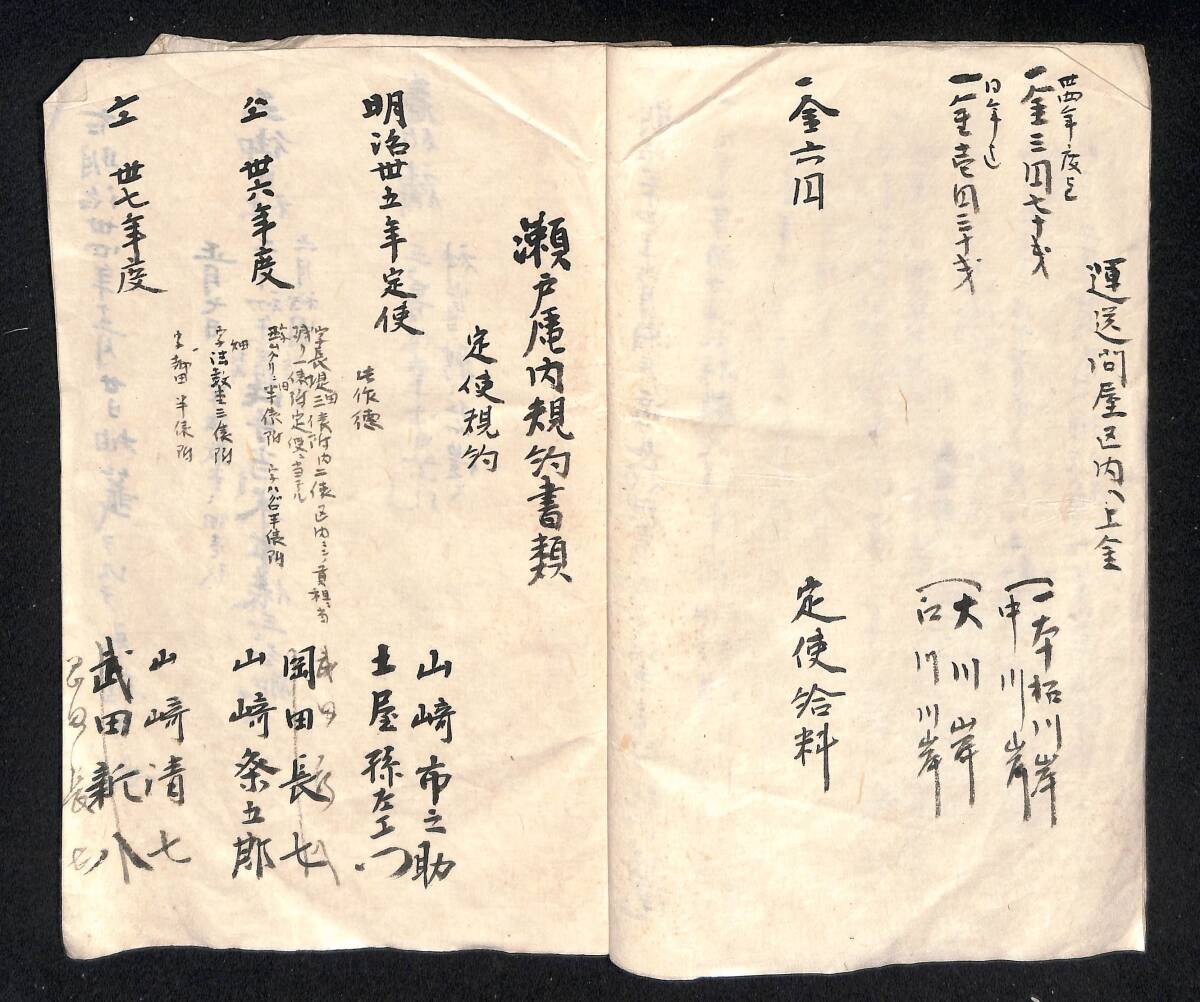 運送問屋区内ヘ上金
卅四年度ゟ
一金三円七十戔
一本柘川岸
中川岸
日年ゟ
一金壱円三十戔
大川岸
江川川岸
一金六円
定使給料
瀬戸庵内規約書類
定使規約
明治卅五年定使
山崎市之助
土屋孫左エ門
此作徳
字長堤田三俵附内二俵区内ニシ貢租当
残り一俵附定使ニ当テル
半俵附
半俵附
仝 卅六年度
岡田長七
山崎条五郎
畑
三俵附
半俵附
仝 卅七年度
山崎清七
武田新八